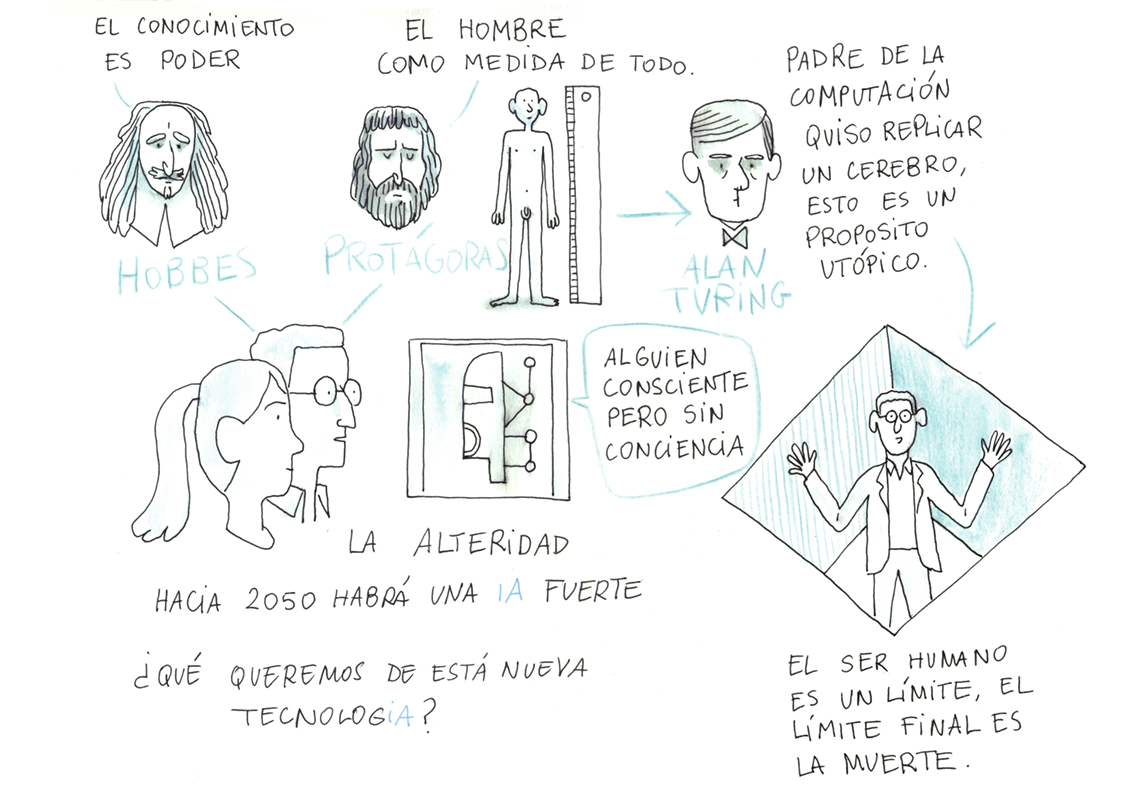 EL CONOCIMIENTO
ES PODER
EL HOMBRE
COMO MEDIDA DE TODO.
PADRE DE LA
COMPUTACIÓN
QUISO REPLICAR
UN CEREBRO,
ESTO ES UN
PROPOSITO
UTÓPICO.
HOBBES
PROTÁGORAS
ALAN
TURING
ALGUIEN
CONSCIENTE
PERO SIN
CONCIENCIA
LA ALTERIDAD
HACIA 2050 HABRÁ UNA IA FUERTE
¿QUÉ QUEREMOS DE ESTÁ NUEVA
TECNOLOGiA?
EL SER HUMANO
ES UN LÍMITE, EL
LÍMITE FINAL ES
LA MUERTE.